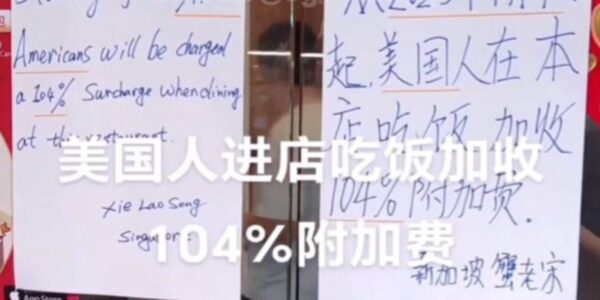 Americans will be charged
a 104% Surcharge when dining
at this restaurant.
Xie Lao Song
起,美国人在本
店吃饭加收
104%附加费.
新加坡 蟹老宋
美国人进店吃饭加收
104%附加费
App Store